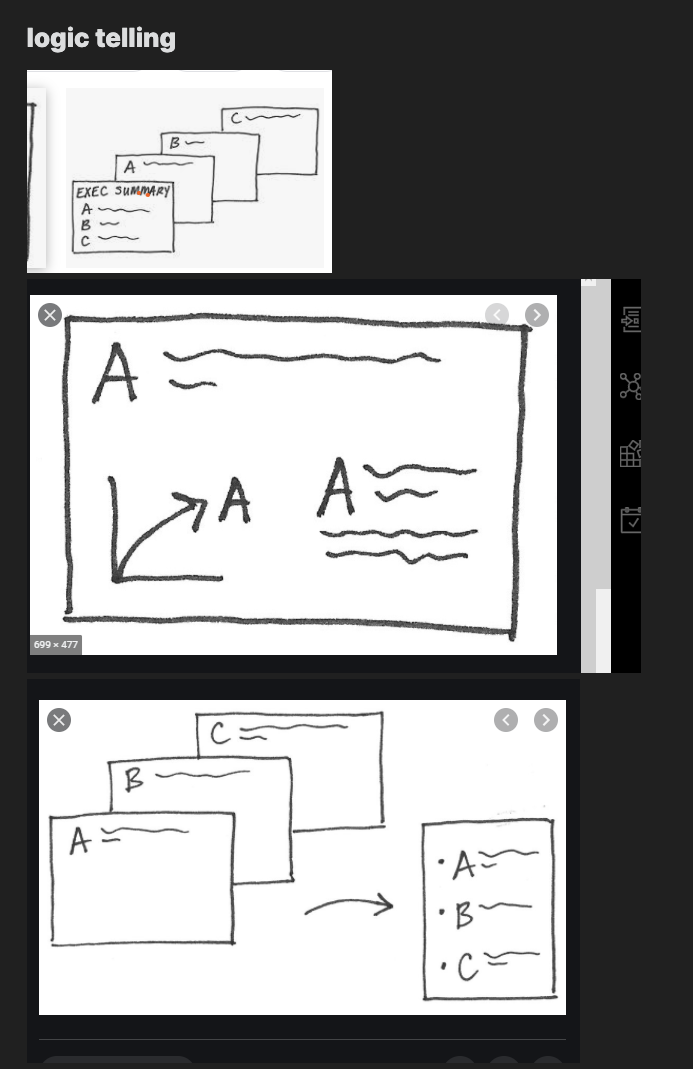 logic telling
C
B
A
EXEC SUMMARY
A
B
C
A
A
A
699 × 477
C
B
A
• A
• B
• C